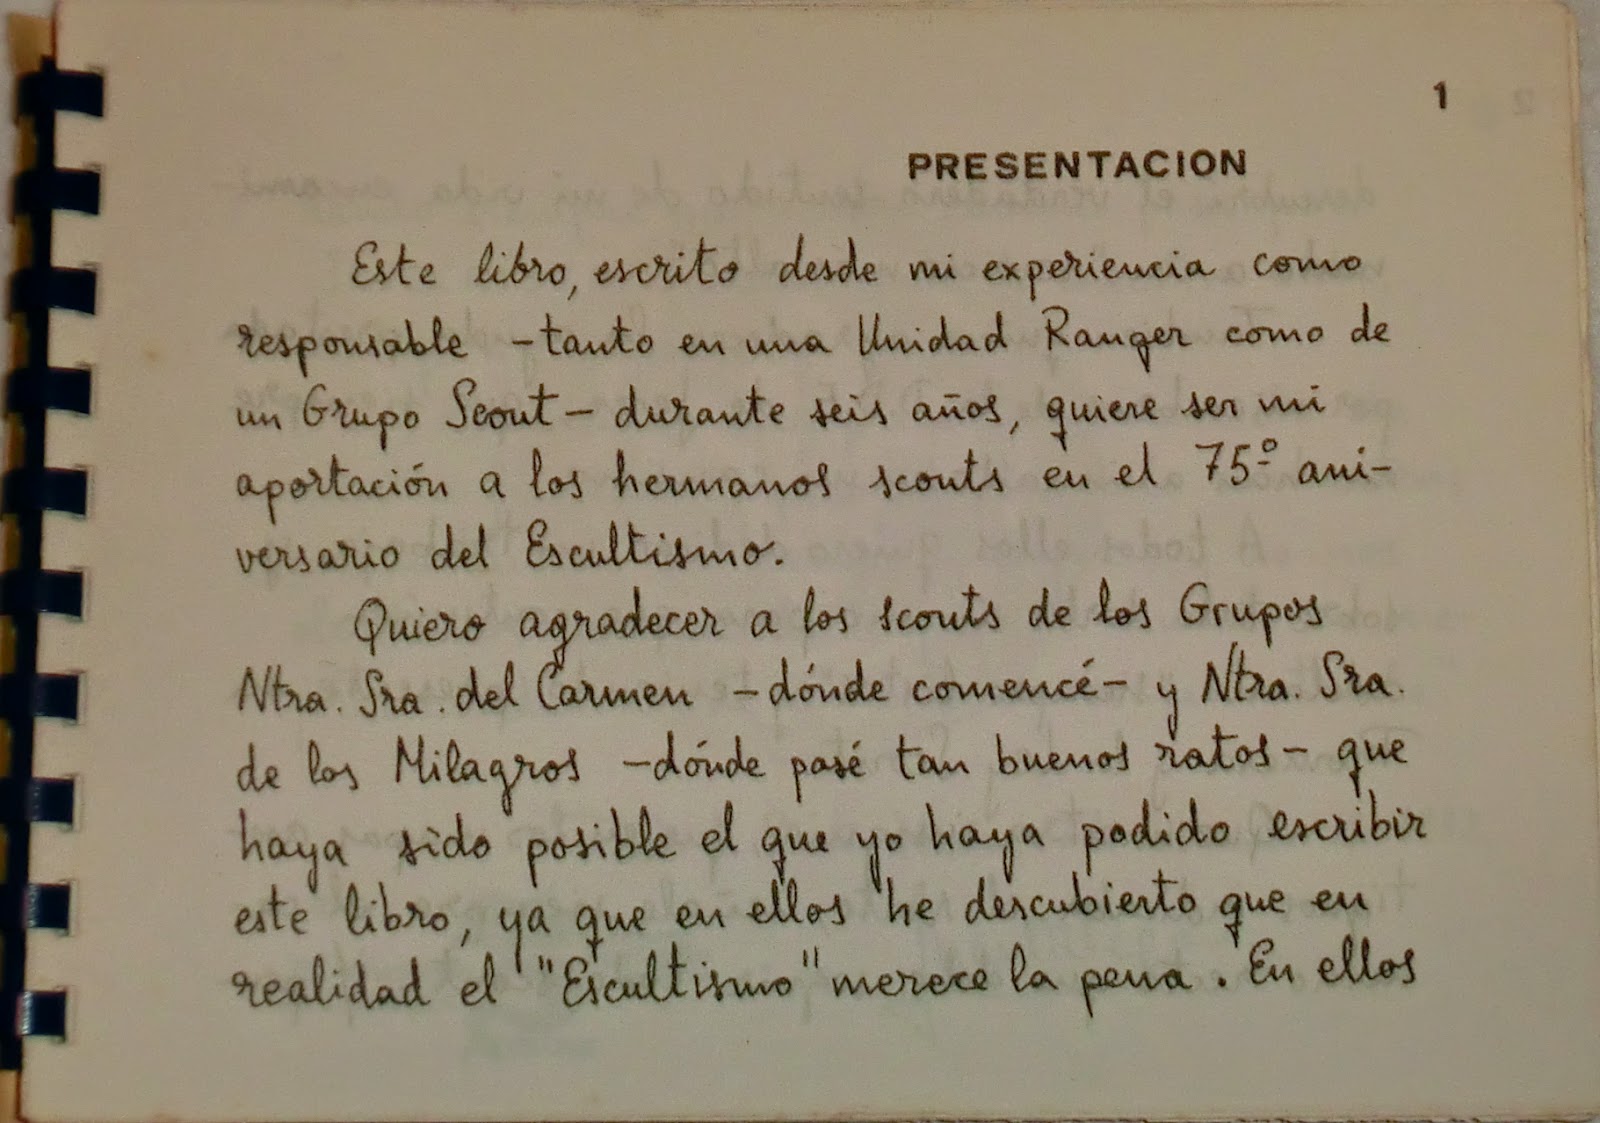 1
PRESENTACION
Este libro, escrito desde mi experiencia como
responsable -tanto en una Unidad Ranger como de
un Grupo Scout- durante seis años, quiere ser mi
aportación a los hermanos scouts en el 75º ani-
versario del Escultismo.
Quiero agradecer a los scouts de los Grupos
Ntra. Sra. del Carmen -dónde comencé- y Ntra. Sra.
de los Milagros -dónde pasé tan buenos ratos- que
haya sido posible el que yo haya podido escribir
este libro, ya que en ellos he descubierto que en
realidad el "Escultismo" merece la pena. En ellos